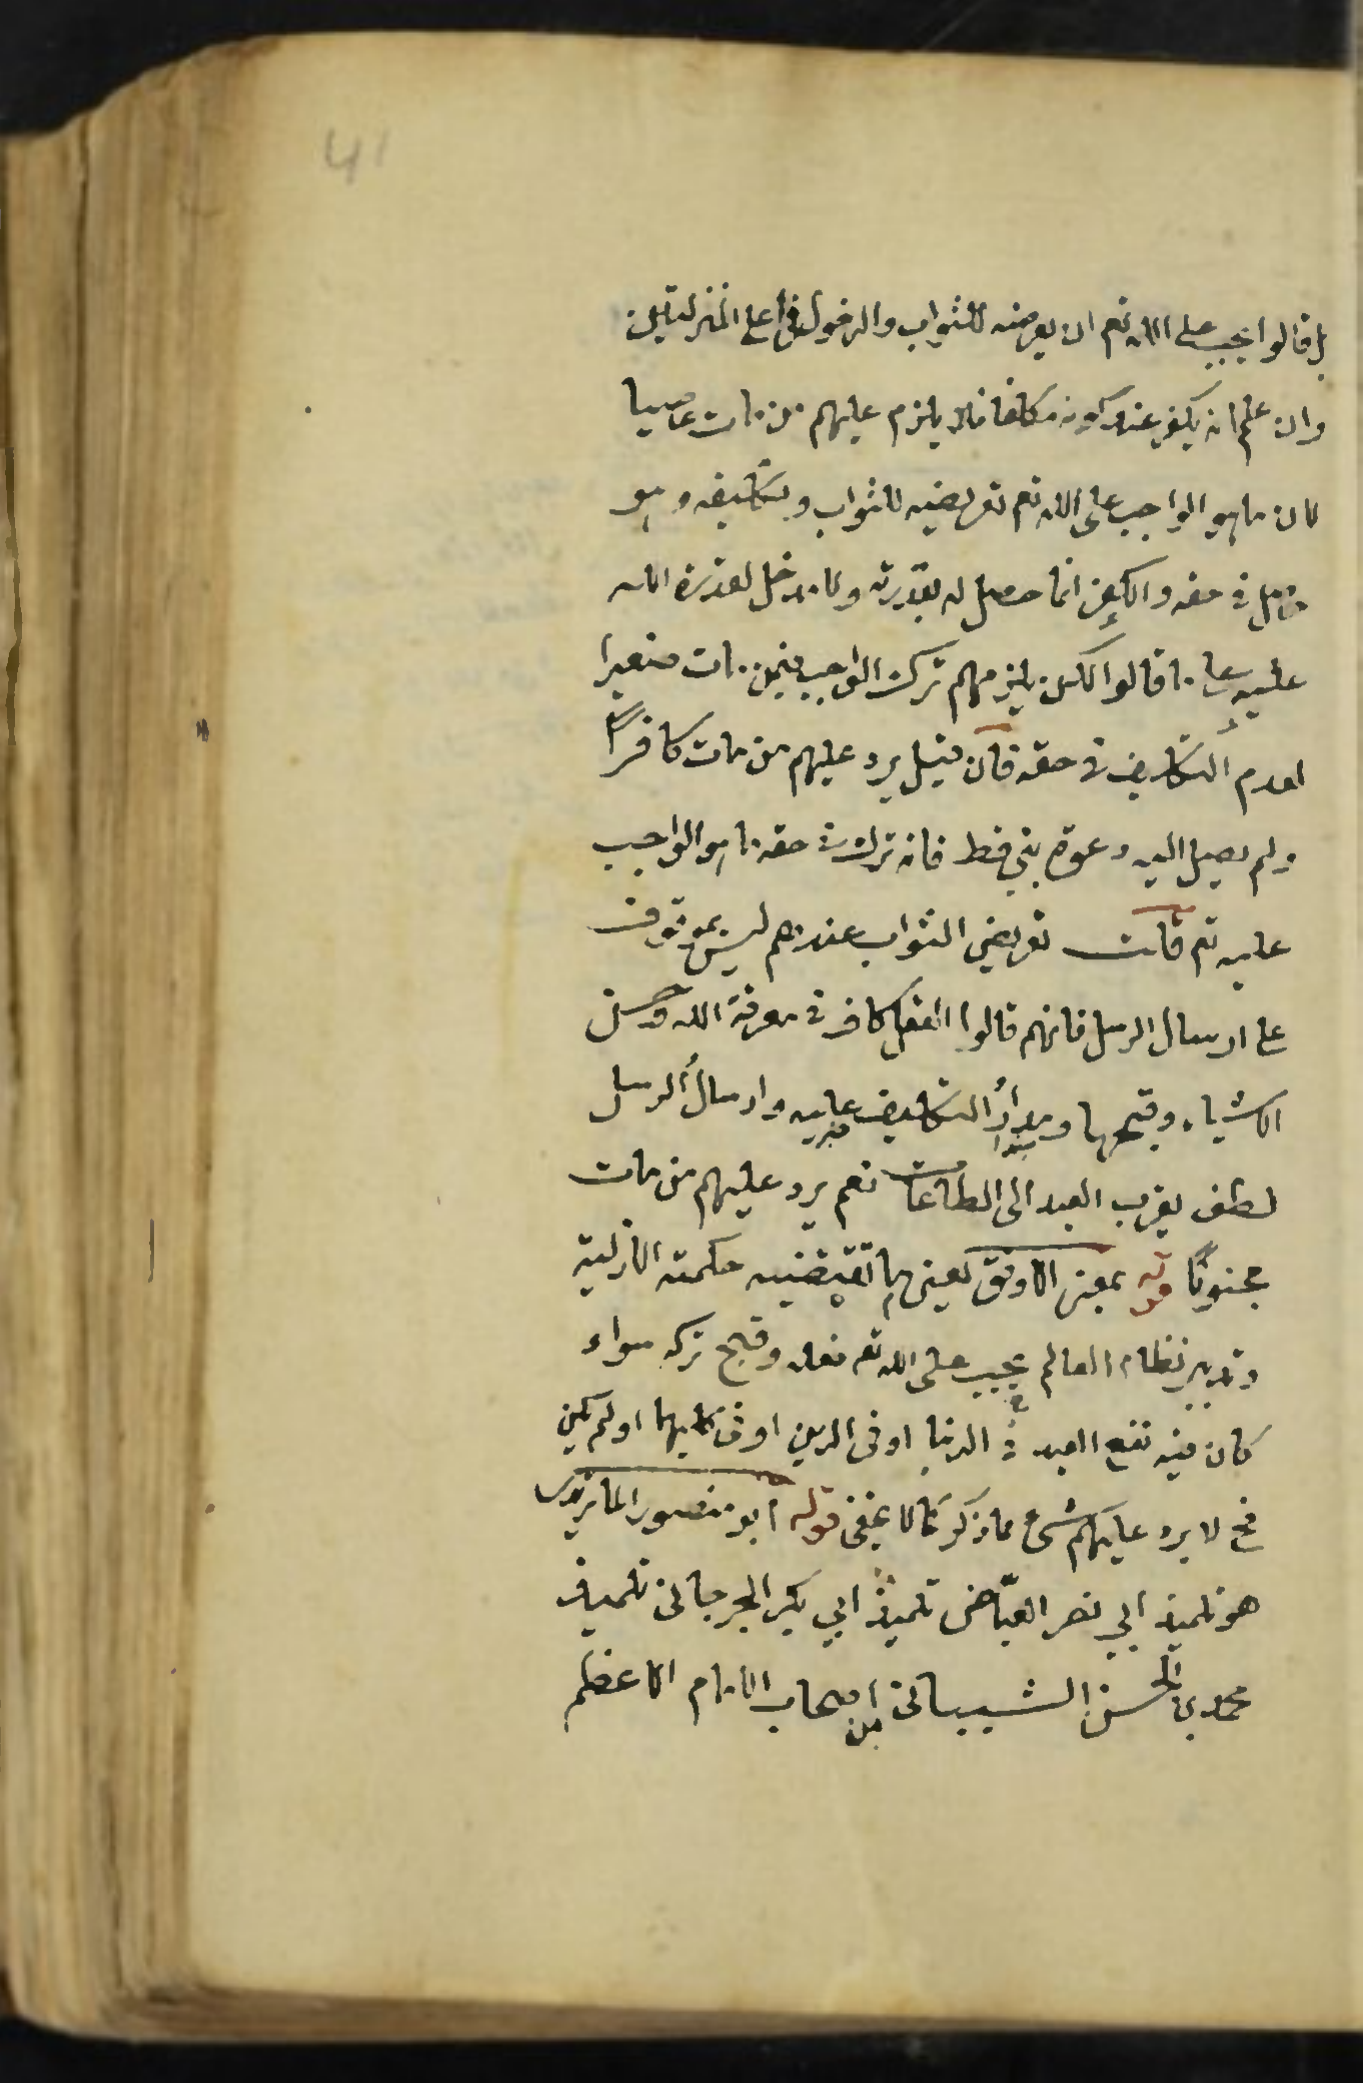 41
بل قالوا يجب على الله تع ان يعرضه للثواب والدخول في اعلى المنزلتين
وان علم انه يكفر عند كونه مكلفا فلا يلزم عليهم من مات عاصيا
لان ما هو الواجب على الله تع تعريضه للثواب وبتكليفه وهو
حاصل في حقه والكفر انما حصل له بقدرته ولا مدخل لقدرة الله
عليه على ما قالوا لكن يلزمهم ترك الواجب فيمن مات صغيرا
لعدم التكليف في حقه فان قيل يرد عليهم من مات كافرا
ولم يصل اليه دعوة نبي قط فانه ترك في حقه ما هو الواجب
عليه تع قلت تعريض الثواب عندهم ليس بموقوف
على ارسال الرسل فانهم قالوا العقل كاف في معرفة الله وحسن
الاشياء وقبحها ومدار التكليف عليه وارسال الرسل
لطف يقرب العبد الى الطاعات نعم يرد عليهم من مات
مجنونا قوله بمعنى الاوفق يعني ما تقتضيه حكمته الازلية
وتدبير نظام العالم يجب على الله تع فعله وقبح تركه سواء
كان فيه نفع العبد في الدنيا او في الدين او في كليهما او لم يكن
فح لا يرد عليهم شئ مما ذكر كما لا يخفى قوله ابو منصور الماتريدى
هو تلميذ ابي نصر العياض تلميذ ابي بكر الجرجاني تلميذ
محمد بن الحسن الشيباني من اصحاب الامام الاعظم